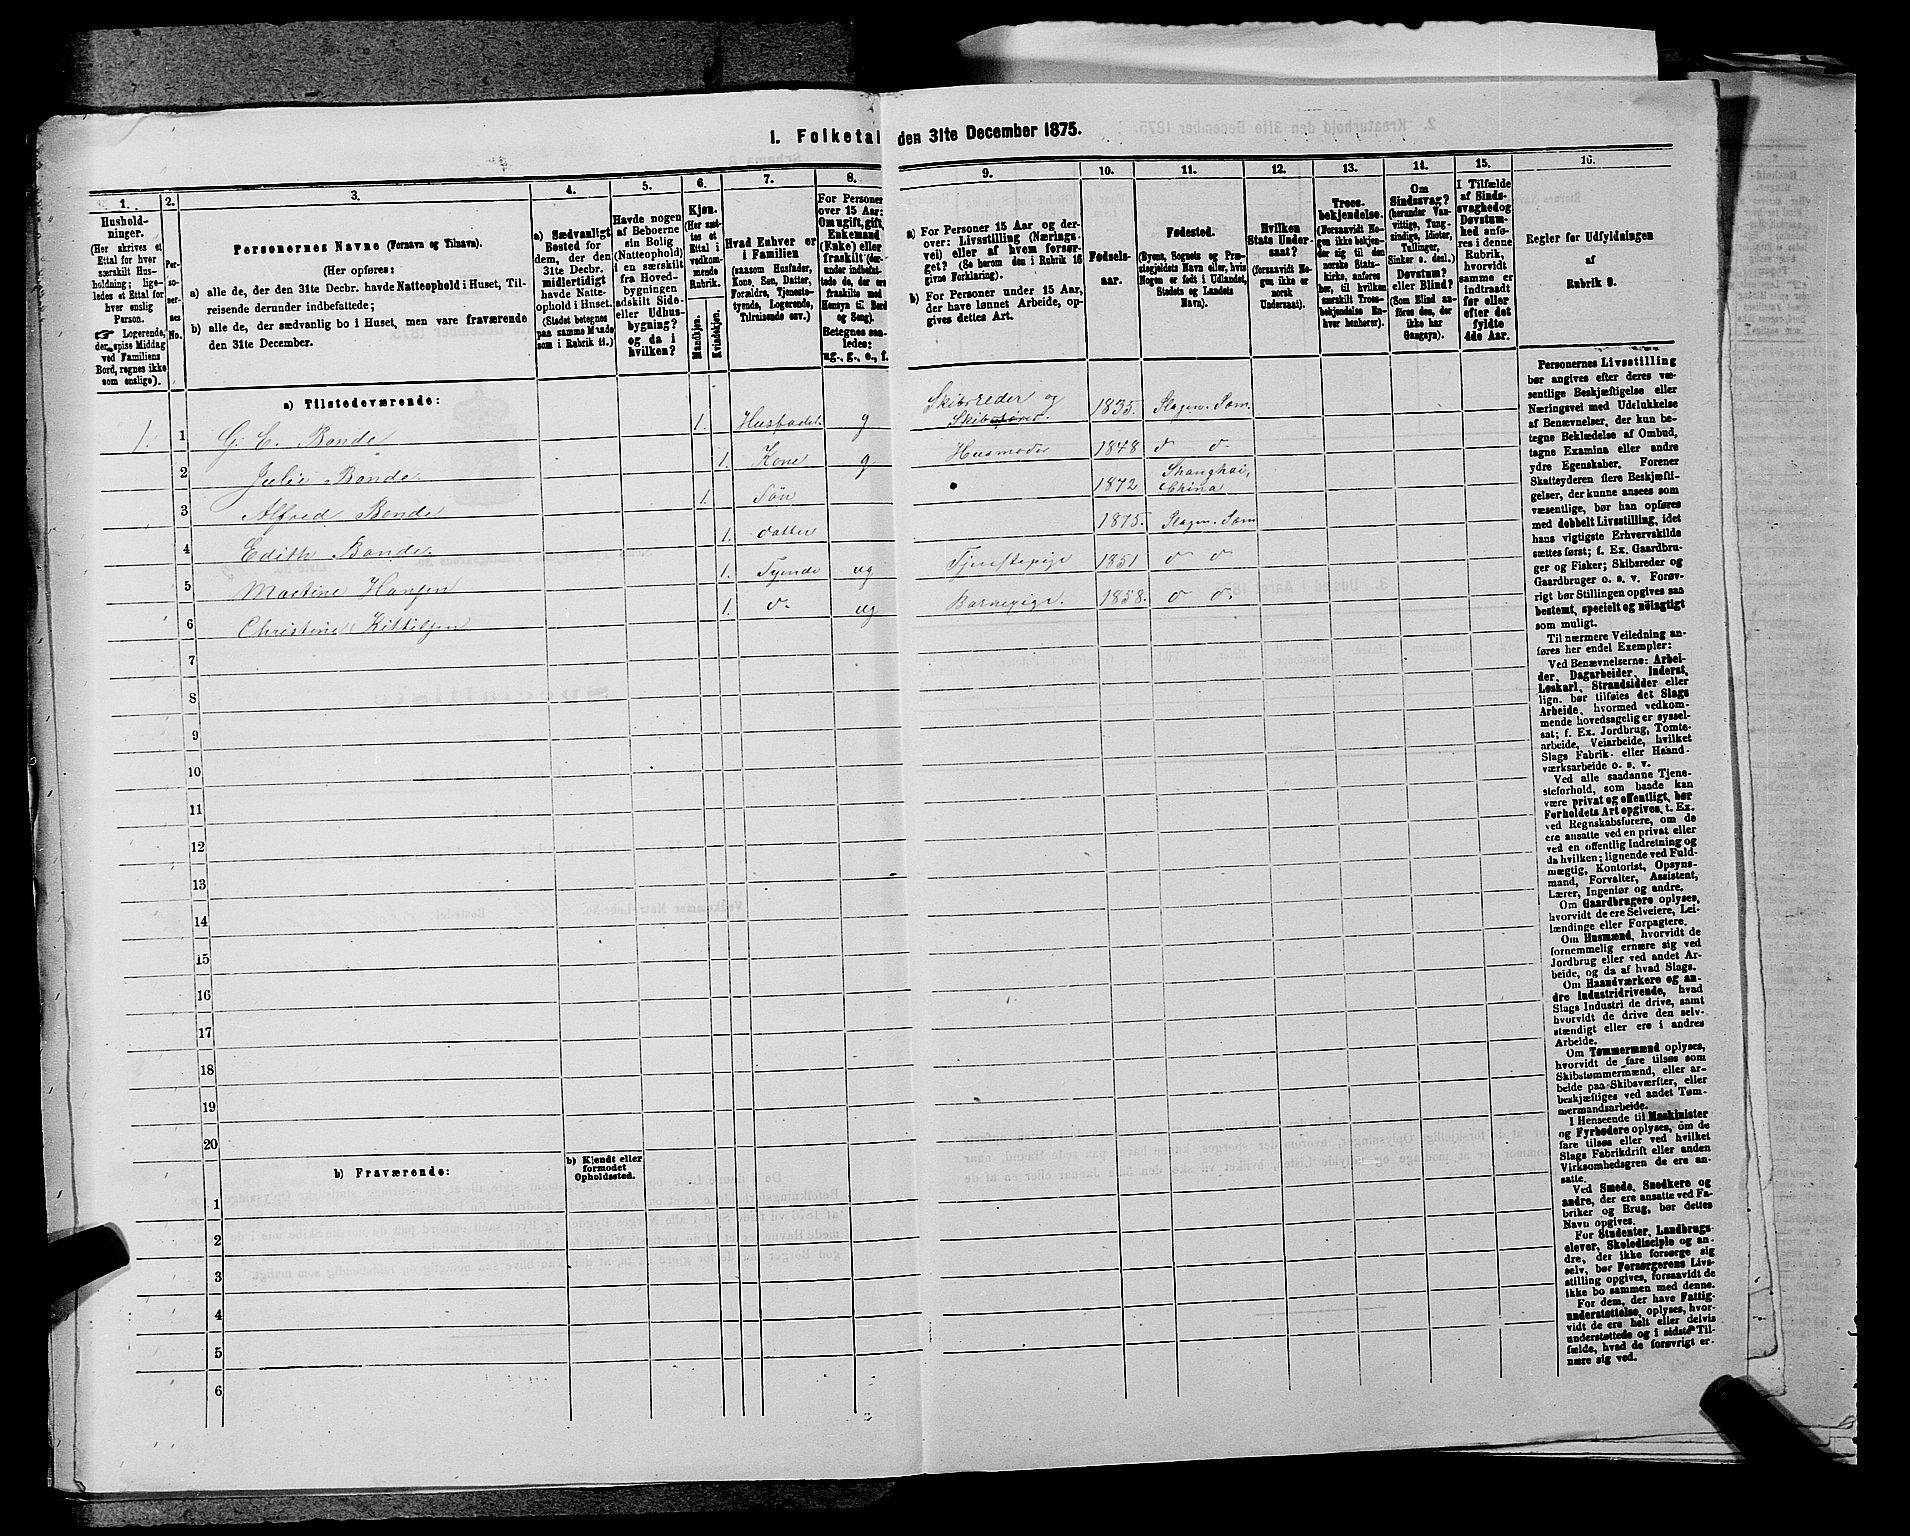 1. Folketal den 31te December 1875.
1.
Hushold-
ninger.
(Her skrives et
Ettal for hver
særskilt Hus-
holdning; lige-
ledes et Ettal for
hver enslig
Person.
☞ Logerende,
der spise Middag
ved Familiens
Bord, regnes ikke
som enslige).
2.
Per-
so-
ner-
nes
No.
3.
Personernes Navne (Fornavn og Tilnavn).
(Her opføres:
a) alle de, der den 31te Decbr. havde Natteophold i Huset, Til-
reisende derunder indbefattede;
b) alle de, der sædvanlig bo i Huset, men vare fraværende
den 31te December.
4.
a) Sædvanligt
Bosted for
dem, der den
31te Decbr.
midlertidigt
havde Natte-
ophold i Huset.
(Stedet betegnes
paa samme Maade
som i Rubrik 11.)
5.
Havde nogen
af Beboerne
sin Bolig
(Natteophold)
i en særskilt
fra Hoved-
bygningen
adskilt Side-
eller Udhus-
bygning?
og da i
hvilken?
6.
Kjøn.
(Her sæt-
tes et
Ettal i
vedkom-
mende
Rubrik.
Mandkjøn.
Kvindekjøn.
7.
Hvad Enhver er
i Familien
(saasom Husfader,
Kone, Søn, Datter,
Forældre, Tjeneste-
tyende, Logerende,
Tilreisende osv.)
8.
For Personer
over 15 Aar:
Om ugift, gift,
Enkemand
(Enke) eller
fraskilt (der-
under indbefat-
tede de, der ere
fraskilte med
Hensyn til Bord
og Seng).
Betegnes saa-
ledes:
ug., g., e., f.
9.
a) For Personer 15 Aar og der-
over: Livsstilling (Nærings-
vei) eller af hvem forsør-
get? (Se herom den i Rubrik 16
givne Forklaring).
b) For Personer under 15 Aar,
der have lønnet Arbeide, op-
gives dettes Art.
10.
Fødsels-
aar.
11.
Fødested.
(Byens, Sognets og Præ-
stegjeldets Navn eller, hvis
Nogen er født i Udlandet,
Stedets og Landets
Navn).
12.
Hvilken
Stats Under-
saat?
(forsaavidt No-
gen ikke er
norsk
Undersaat).
13.
Troes-
bekjendelse.
(Forsaavidt No-
gen ikke bekjen-
der sig til den
norske Stats-
kirke, anføres
her, til hvilken
særskilt Troes-
bekjendelse En-
hver henhører).
14.
Om
Sindssvag?
(herunder Van-
vittige, Tung-
sindige, Idioter,
Tullinger,
Sinker o. desl.)
Døvstum?
eller Blind?
(Som Blind an-
føres den, der
ikke har
Gangsyn).
15.
I Tilfælde
af Sinds-
svaghed og
Døvstum-
hed anfø-
res i denne
Rubrik,
hvorvidt
samme er
indtraadt
før eller
efter det
fyldte
4de Aar.
16.
Regler for Udfyldningen
af
Rubrik 9.
a) Tilstedeværende:
1. 1 G. E. Bonde 1. Husfader g Skibsreder og Skibsfører 1835. Slagen Søm
2 Julie Bonde 1. Kone g Husmoder 1848 do do
3 Alfred Bonde 1. Søn 1872 Shanghai, China
4 Edith Bonde. 1. datter 1875. Slagen Søm
5 Martine Hansen 1. Tyende ug Tjenstepige 1851 do do
6 Christine Kittilsen 1. do ug Barnepige. 1858. do do.
7
8
9
10
11
12
13
14
15
16
17
18
19
20
b) Fraværende:
b) Kjendt eller
formodet
Opholdssted.
1
2
3
4
5
6
Personernes Livsstilling
bør angives efter deres væ-
sentlige Beskjæftigelse eller
Næringsvei med Udelukkelse
af Benævnelser, der kun be-
tegne Beklædelse af Ombud,
tagne Examina eller andre
ydre Egenskaber. Forener
Skatteyderen flere Beskjæfti-
gelser, der kunne ansees som
væsentlige, bør han opføres
med dobbelt Livsstilling, idet
hans vigtigste Erhvervskilde
sættes først; f. Ex. Gaardbru-
ger og Fisker; Skibsreder og
Gaardbruger o. s. v. Forøv-
rigt bør Stillingen opgives saa
bestemt, specielt og nøiagtigt
som muligt.
Til nærmere Veiledning an-
føres her endel Exempler:
Ved Benævnelserne: Arbei-
der, Dagarbeider, Inderst,
Løskarl, Strandsidder eller
lign. bør tilføies det Slags
Arbeide, hvormed vedkom-
mende hovedsagelig er syssel-
sat; f. Ex. Jordbrug, Tomte-
arbeide, Veiarbeide, hvilket
Slags Fabrik- eller Haand-
værksarbeide o. s. v.
Ved alle saadanne Tjene-
steforhold, som baade kan
være privat og offentligt, bør
Forholdets Art opgives, t. Ex.
ved Regnskabsførere, om de
ere ansatte ved en privat eller
ved en offentlig Indretning og
da hvilken; lignende ved Fuld-
mægtig, Kontorist, Opsyns-
mand, Forvalter, Assistent,
Lærer, Ingeniør og andre.
Om Gaardbrugere oplyses,
hvorvidt de ere Selveiere, Lei-
lændinge eller Forpagtere.
Om Husmænd, hvorvidt de
fornemmelig ernære sig ved
Jordbrug eller ved andet Ar-
beide, og da af hvad Slags.
Om Haandværkere og an-
dre Industridrivende, hvad
Slags Industri de drive, samt
hvorvidt de drive den selv-
stændigt eller ere i andres
Arbeide.
Om Tømmermænd oplyses,
hvorvidt de fare tilsøs som
Skibstømmermænd, eller ar-
beide paa Skibsværfter, eller
beskjæftiges ved andet Tøm-
mermandsarbeide.
I Henseende til Maskinister
og Fyrbødere oplyses, om de
fare tilsøs eller ved hvilket
Slags Fabrikdrift eller anden
Virksomhedsgren de ere an-
satte.
Ved Smede, Snedkere og
andre, der ere ansatte ved Fa-
briker og Brug, bør dettes
Navn opgives.
For Studenter, Landbrugs-
elever, Skoledisciple og an-
dre, der ikke forsørge sig
selv, bør Forsørgerens Livs-
stilling opgives, forsaavidt de
ikke bo sammen med denne.
For dem, der have Fattig-
understøttelse, oplyses, hvor-
vidt de ere helt eller delvis
understøttede og i sidste Til-
fælde, hvad de forøvrigt er-
nære sig ved.